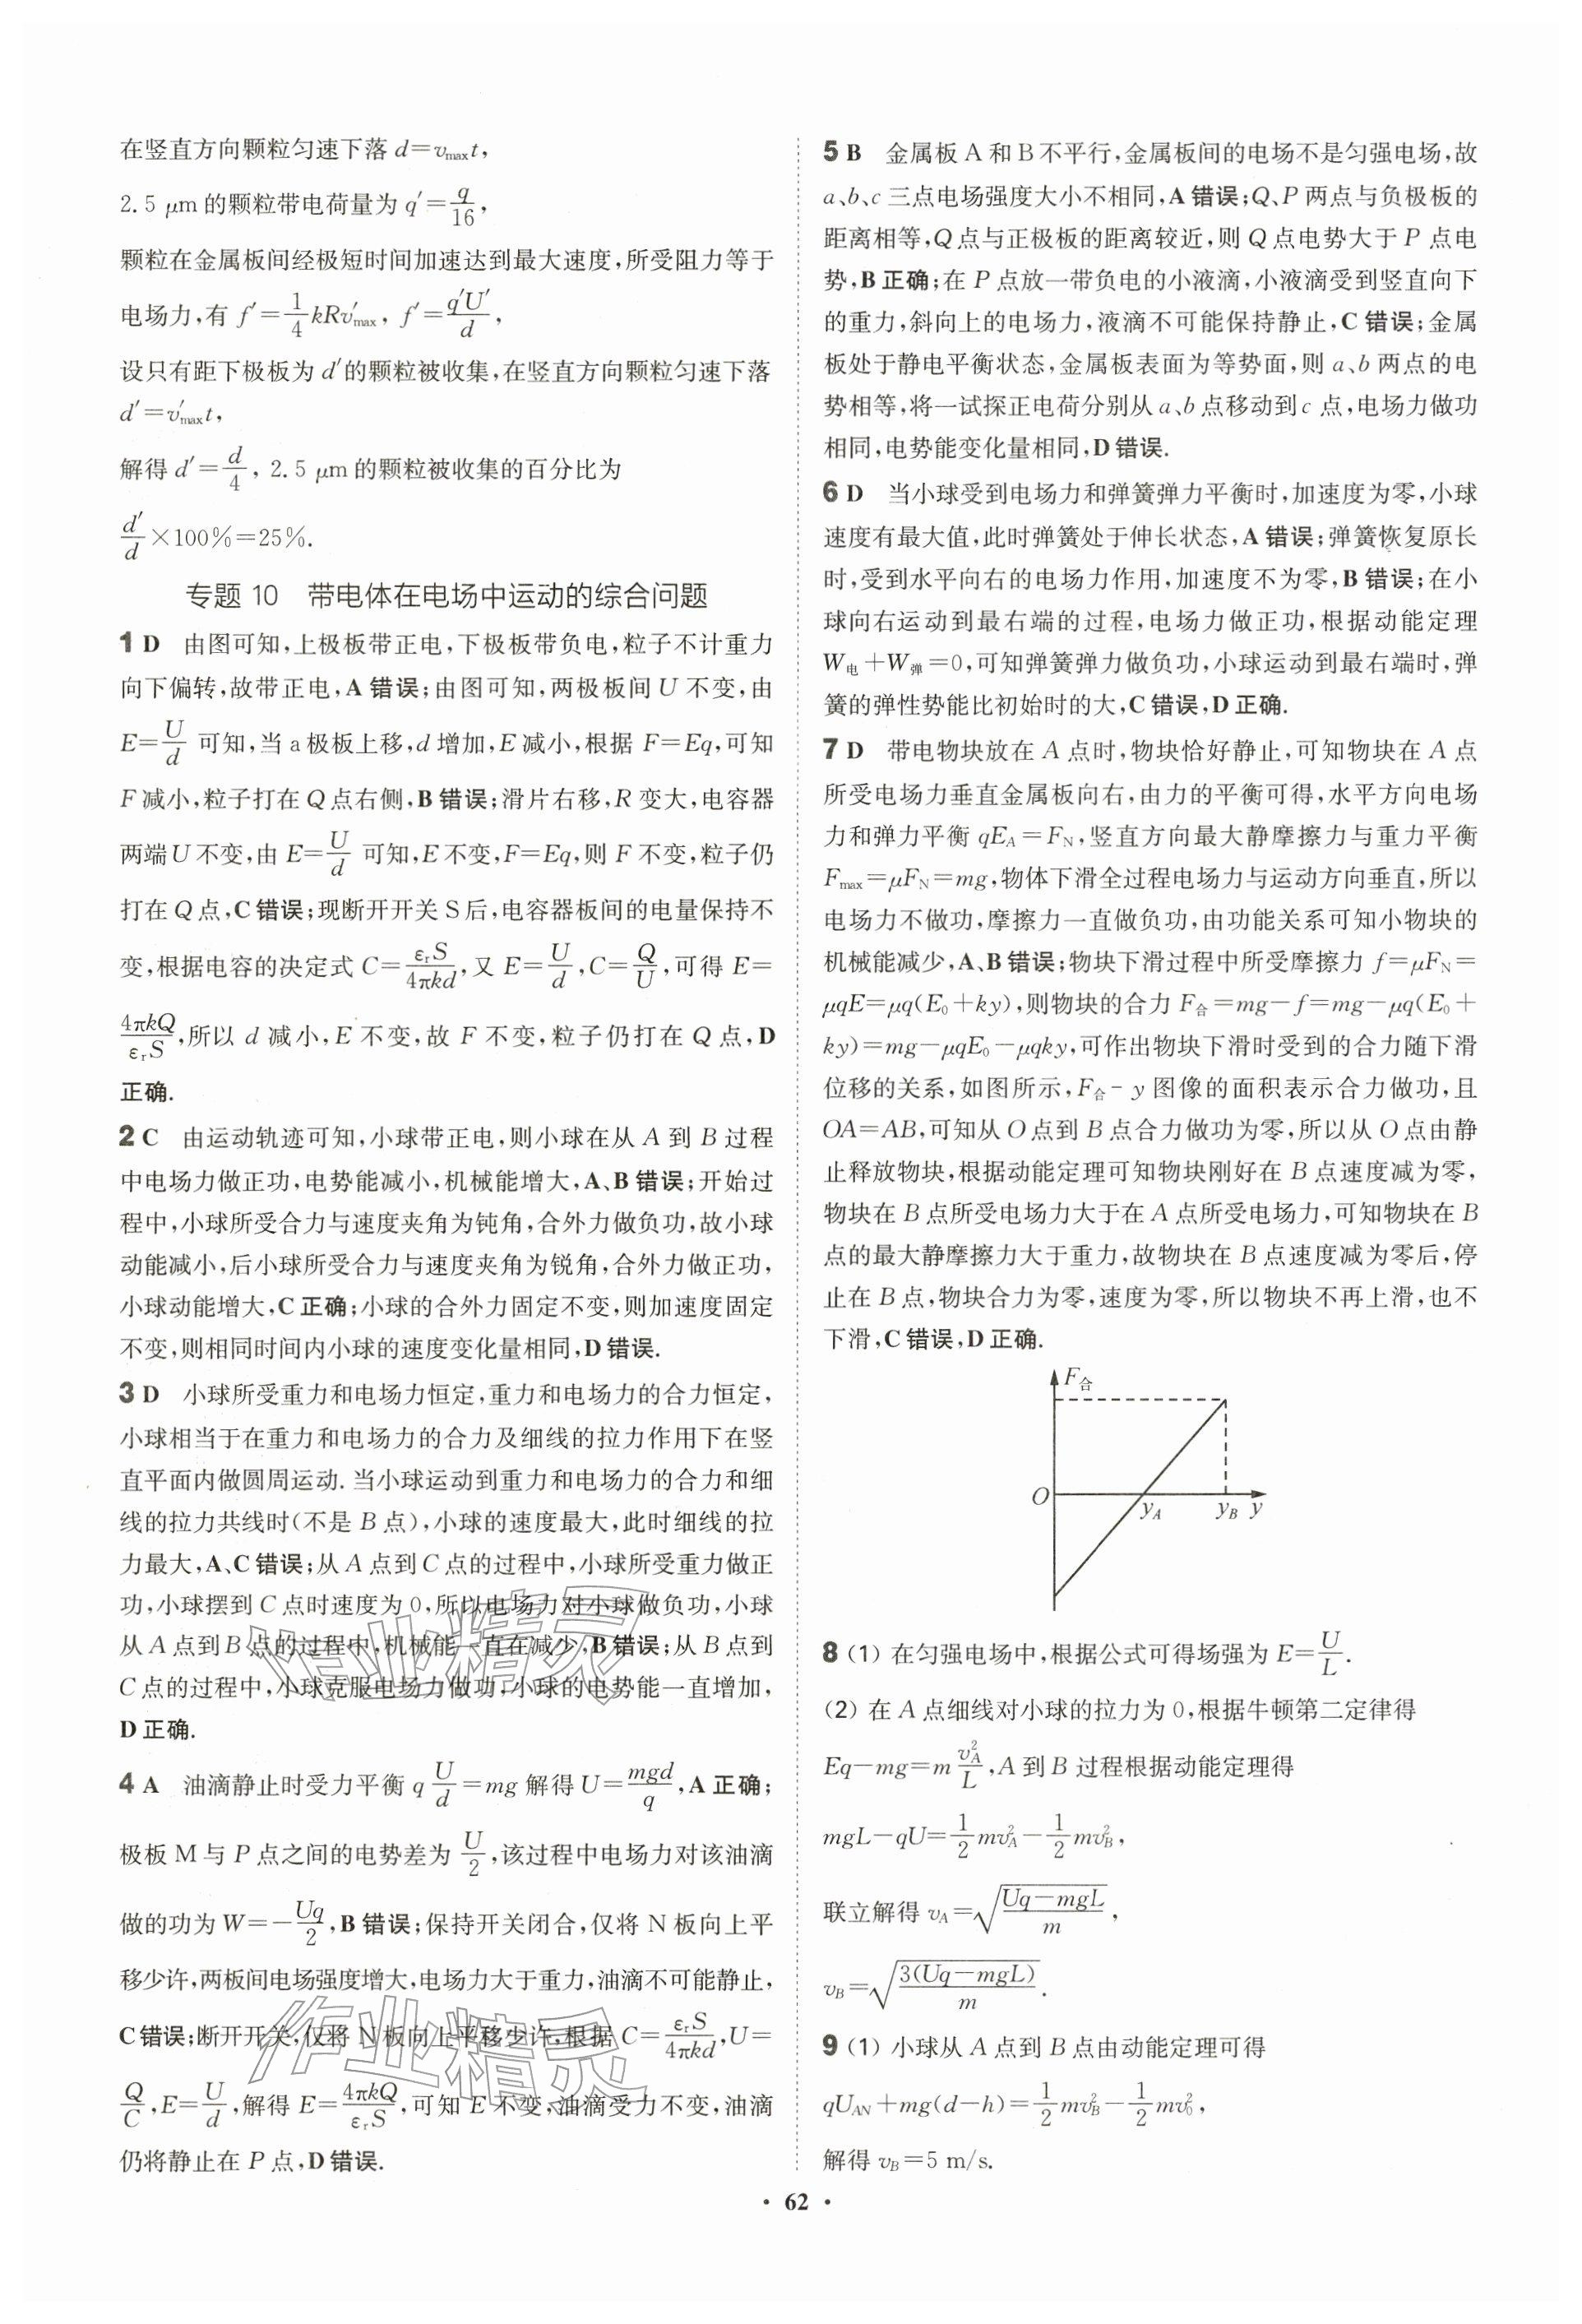 在竖直方向颗粒匀速下落 d=vmaxt,
2.5 μm 的颗粒带电荷量为 q′=q/16,
颗粒在金属板间经极短时间加速达到最大速度,所受阻力等于
电场力,有 f′=1/4 kRv′max, f′=q′U′/d,
设只有距下极板为 d′的颗粒被收集,在竖直方向颗粒匀速下落
d′=v′maxt,
解得 d′=d/4, 2.5 μm 的颗粒被收集的百分比为
d′/d×100%=25%.
专题 10 带电体在电场中运动的综合问题
1 D 由图可知,上极板带正电,下极板带负电,粒子不计重力
向下偏转,故带正电,A 错误;由图可知,两极板间 U 不变,由
E=U/d 可知,当 a 极板上移,d 增加,E 减小,根据 F=Eq,可知
F 减小,粒子打在 Q 点右侧,B 错误;滑片右移,R 变大,电容器
两端 U 不变,由 E=U/d 可知,E 不变,F=Eq,则 F 不变,粒子仍
打在 Q 点,C 错误;现断开开关 S 后,电容器板间的电量保持不
变,根据电容的决定式 C=εrS/4πkd,又 E=U/d,C=Q/U,可得 E=
4πkQ/εrS,所以 d 减小,E 不变,故 F 不变,粒子仍打在 Q 点,D
正确.
2 C 由运动轨迹可知,小球带正电,则小球在从 A 到 B 过程
中电场力做正功,电势能减小,机械能增大,A、B 错误;开始过
程中,小球所受合力与速度夹角为钝角,合外力做负功,故小球
动能减小,后小球所受合力与速度夹角为锐角,合外力做正功,
小球动能增大,C 正确;小球的合外力固定不变,则加速度固定
不变,则相同时间内小球的速度变化量相同,D 错误.
3 D 小球所受重力和电场力恒定,重力和电场力的合力恒定,
小球相当于在重力和电场力的合力及细线的拉力作用下在竖
直平面内做圆周运动. 当小球运动到重力和电场力的合力和细
线的拉力共线时(不是 B 点),小球的速度最大,此时细线的拉
力最大,A、C 错误;从 A 点到 C 点的过程中,小球所受重力做正
功,小球摆到 C 点时速度为 0,所以电场力对小球做负功,小球
从 A 点到 B 点的过程中,机械能一直在减少,B 错误;从 B 点到
C 点的过程中,小球克服电场力做功,小球的电势能一直增加,
D 正确.
4 A 油滴静止时受力平衡 q U/d=mg 解得 U=mgd/q,A 正确;
极板 M 与 P 点之间的电势差为 U/2,该过程中电场力对该油滴
做的功为 W=-Uq/2,B 错误;保持开关闭合,仅将 N 板向上平
移少许,两板间电场强度增大,电场力大于重力,油滴不可能静止,
C 错误;断开开关,仅将 N 板向上平移少许,根据 C=εrS/4πkd,U=
Q/C,E=U/d,解得 E=4πkQ/εrS,可知 E 不变,油滴受力不变,油滴
仍将静止在 P 点,D 错误.
5 B 金属板 A 和 B 不平行,金属板间的电场不是匀强电场,故
a、b、c 三点电场强度大小不相同,A 错误;Q、P 两点与负极板的
距离相等,Q 点与正极板的距离较近,则 Q 点电势大于 P 点电
势,B 正确;在 P 点放一带负电的小液滴,小液滴受到竖直向下
的重力,斜向上的电场力,液滴不可能保持静止,C 错误;金属
板处于静电平衡状态,金属板表面为等势面,则 a、b 两点的电
势相等,将一试探正电荷分别从 a、b 点移动到 c 点,电场力做功
相同,电势能变化量相同,D 错误.
6 D 当小球受到电场力和弹簧弹力平衡时,加速度为零,小球
速度有最大值,此时弹簧处于伸长状态,A 错误;弹簧恢复原长
时,受到水平向右的电场力作用,加速度不为零,B 错误;在小
球向右运动到最右端的过程,电场力做正功,根据动能定理
W电+W弹=0,可知弹簧弹力做负功,小球运动到最右端时,弹
簧的弹性势能比初始时的大,C 错误,D 正确.
7 D 带电物块放在 A 点时,物块恰好静止,可知物块在 A 点
所受电场力垂直金属板向右,由力的平衡可得,水平方向电场
力和弹力平衡 qEA=FN,竖直方向最大静摩擦力与重力平衡
Fmax=μFN=mg,物体下滑全过程电场力与运动方向垂直,所以
电场力不做功,摩擦力一直做负功,由功能关系可知小物块的
机械能减少,A、B 错误;物块下滑过程中所受摩擦力 f=μFN=
μqE=μq(E0+ky),则物块的合力 F合=mg-f=mg-μq(E0+
ky)=mg-μqE0-μqky,可作出物块下滑时受到的合力随下滑
位移的关系,如图所示,F合- y 图像的面积表示合力做功,且
OA=AB,可知从 O 点到 B 点合力做功为零,所以从 O 点由静
止释放物块,根据动能定理可知物块刚好在 B 点速度减为零,
物块在 B 点所受电场力大于在 A 点所受电场力,可知物块在 B
点的最大静摩擦力大于重力,故物块在 B 点速度减为零后,停
止在 B 点,物块合力为零,速度为零,所以物块不再上滑,也不
下滑,C 错误,D 正确.
F合
O yA yB y
8 (1) 在匀强电场中,根据公式可得场强为 E=U/L.
(2) 在 A 点细线对小球的拉力为 0,根据牛顿第二定律得
Eq-mg=m vA²/L,A 到 B 过程根据动能定理得
mgL-qU=1/2 mvA²-1/2 mvB²,
联立解得 vA=√((Uq-mgL)/m),
vB=√(3(Uq-mgL)/m).
9 (1) 小球从 A 点到 B 点由动能定理可得
qUAN+mg(d-h)=1/2 mvB²-1/2 mv0²,
解得 vB=5 m/s.
• 62 •
作业精灵
作业精灵